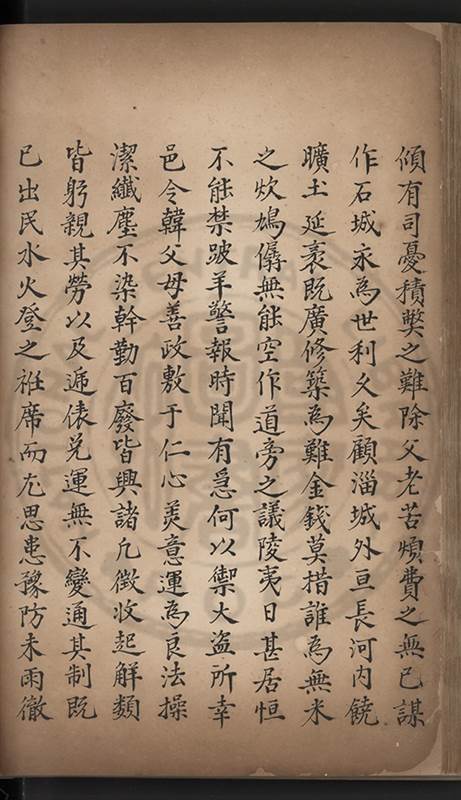 傾有司憂積弊之難除父老苦煩費之無已謀
作石城永為世利久矣顧淄城外亘長河內饒
曠土延袤既廣修築為難金錢莫措誰為無米
之炊鳩僝無能空作道旁之議陵夷日甚居恒
不能禁跛羊警報時聞有急何以禦大盗所幸
邑令韓父母善政敷于仁心羙意運為良法操
潔纖塵不染幹勤百廢皆興諸凡徵收起解類
皆躬親其勞以及遞俵兌運無不變通其制既
已出民水火登之袵席而尤思患豫防未雨徹